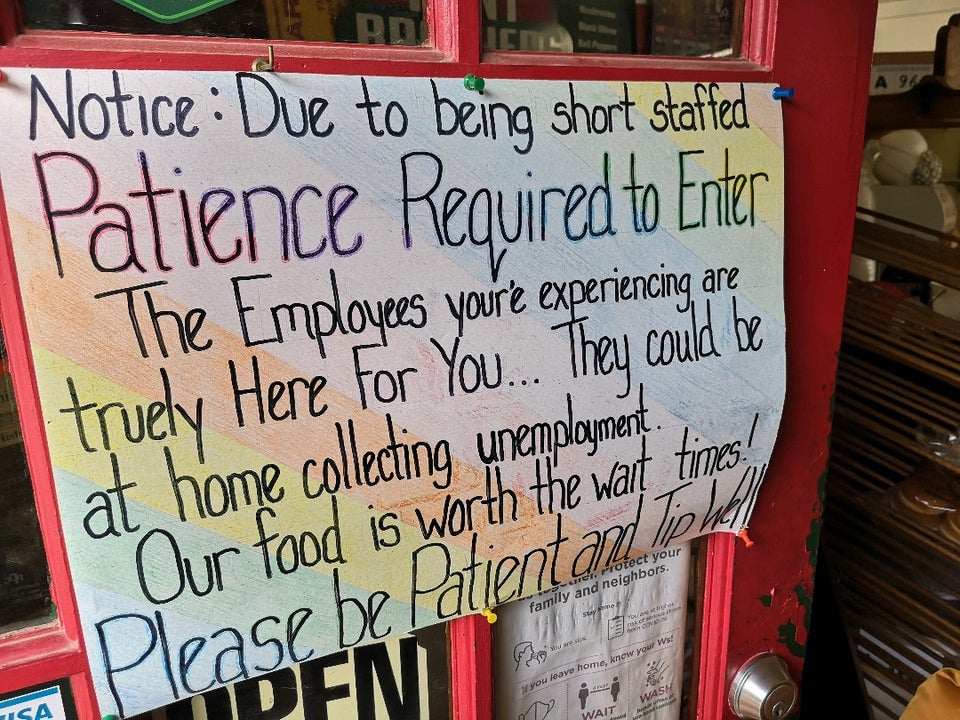 Notice: Due to being short staffed
Patience Required to Enter
The Employees your'e experiencing are
truely Here For You... They could be
at home collecting unemployment.
Our food is worth the wait times!
Please be Patient and Tip Well
Protect your
family and neighbors.
Stay home if:
You are sick.
You are at higher
risk of serious illness
from COVID-19.
you leave home, know your Ws!
WAIT
WASH
OPEN
VISA
A 96